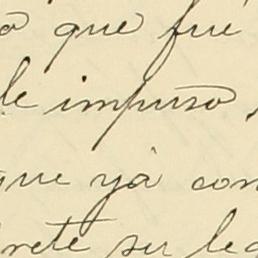 que fué
le impuso,
que yá con
rete su leg